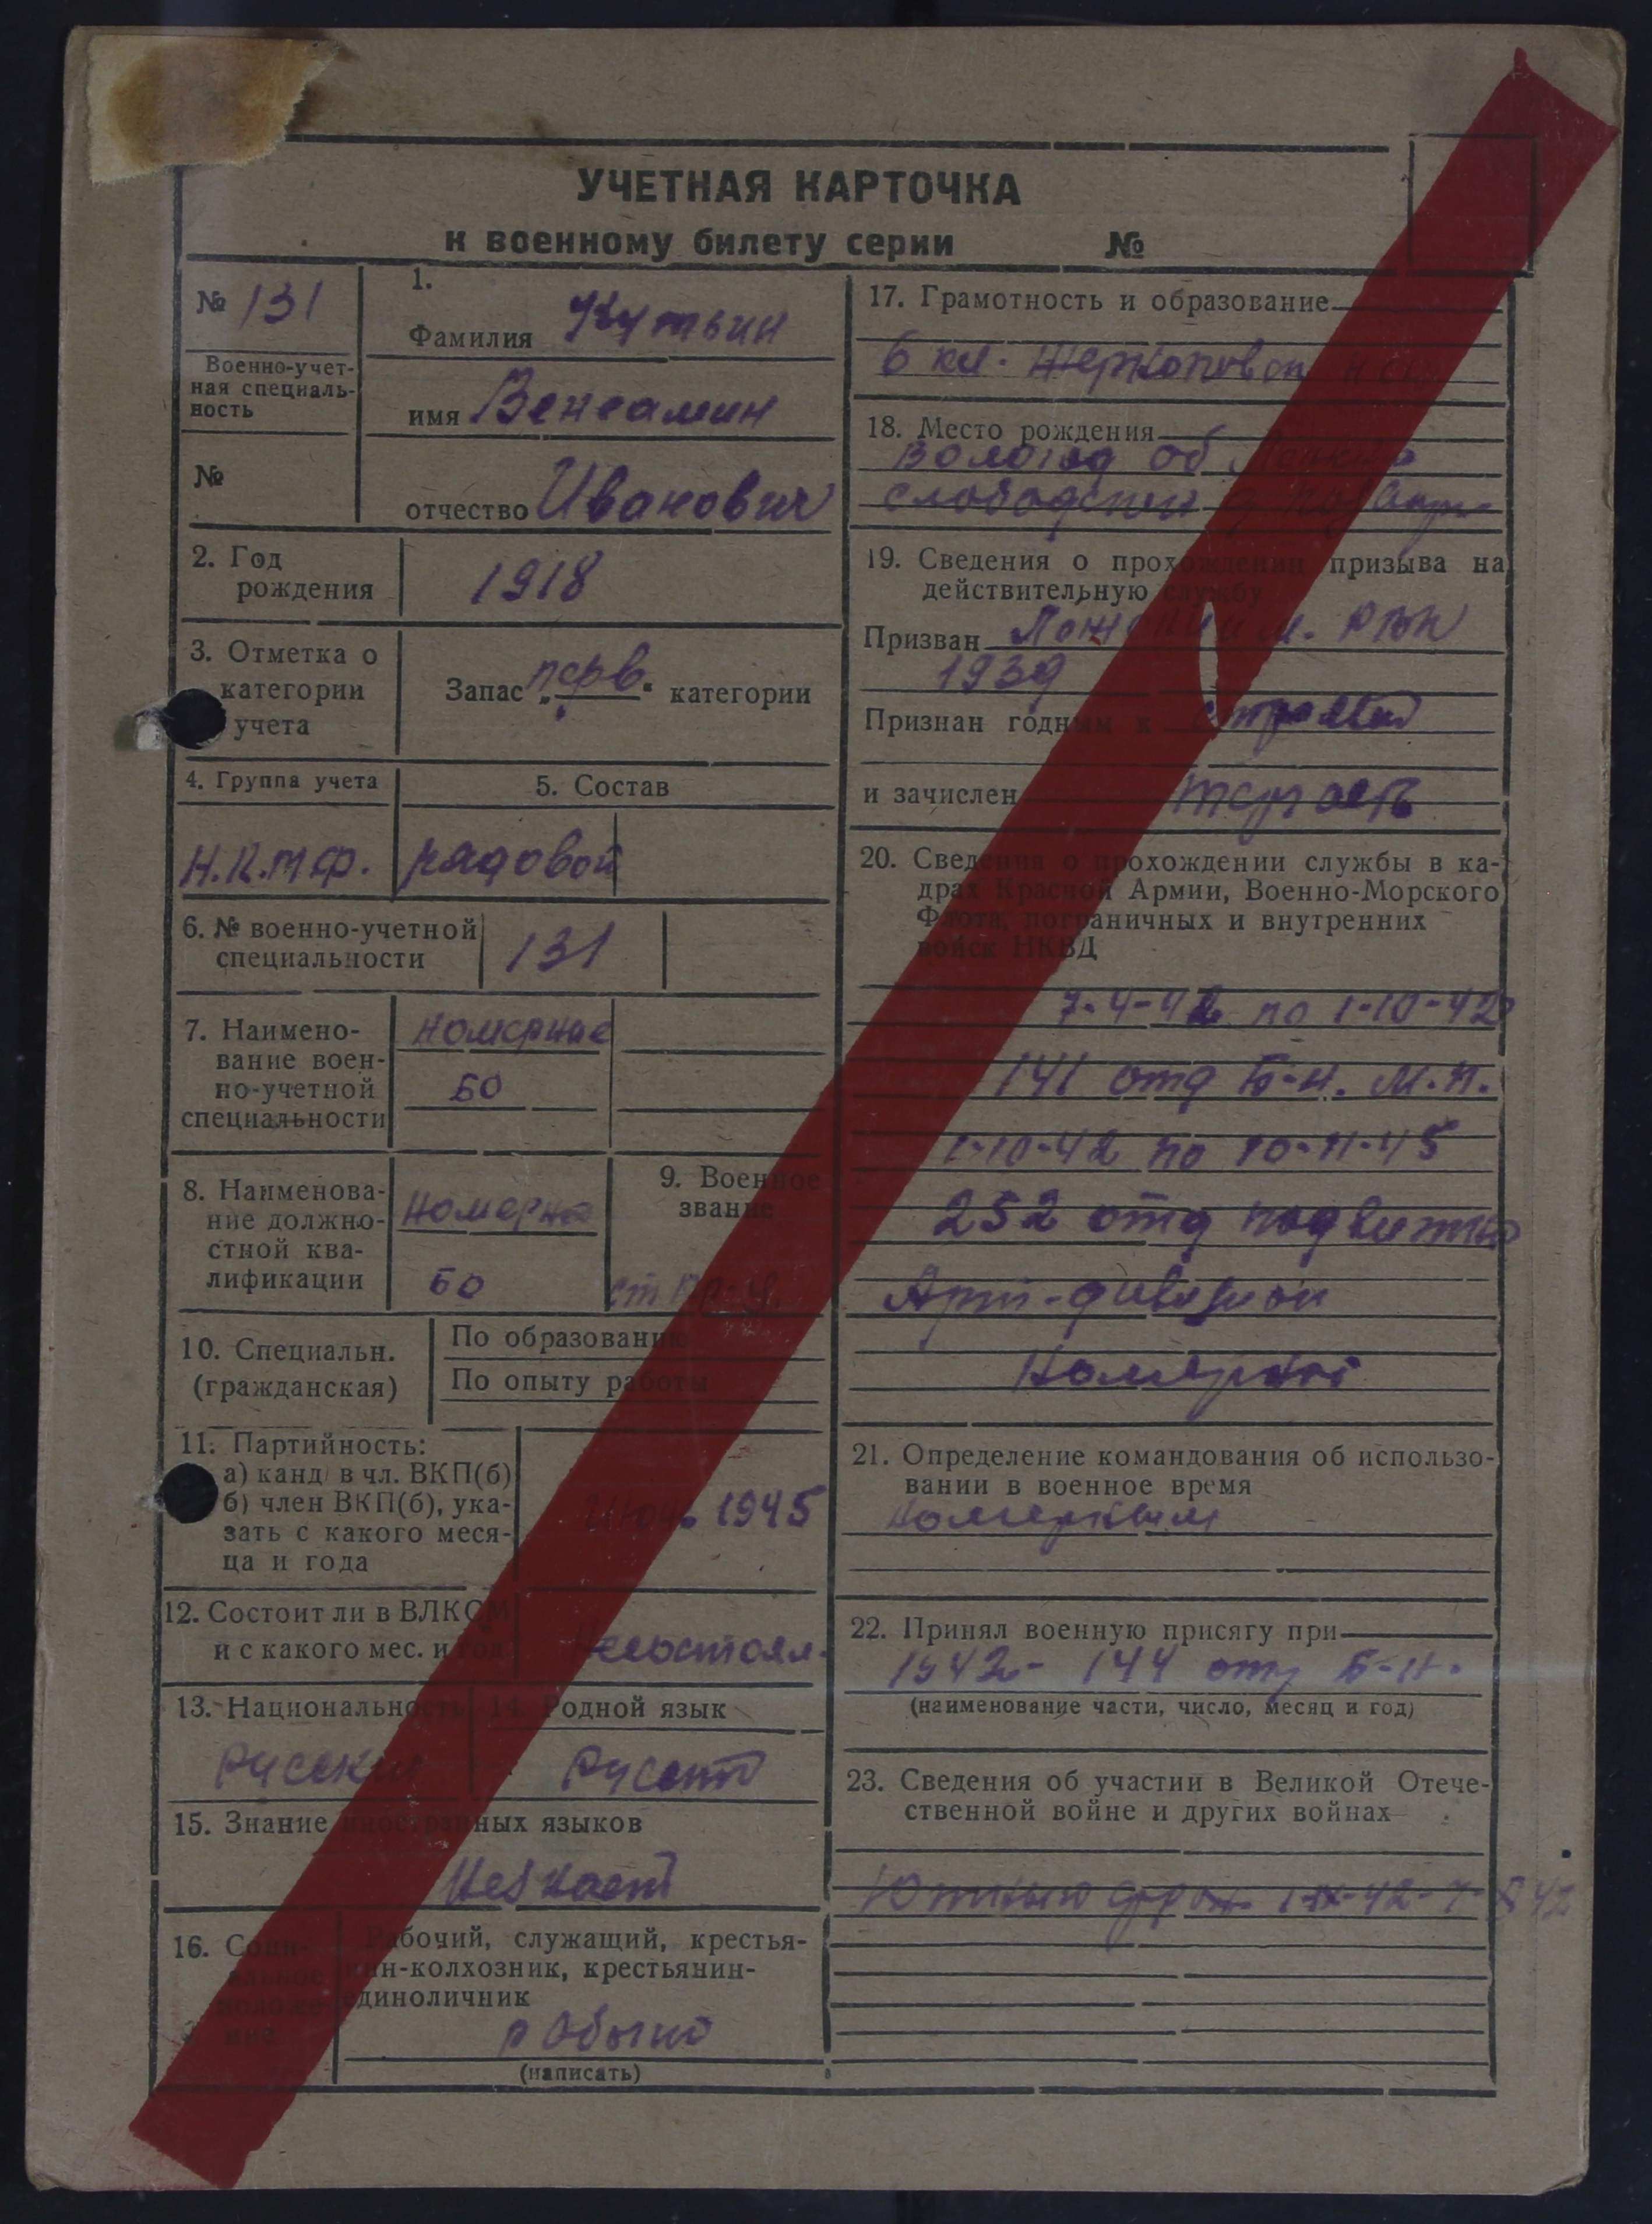 УЧЕТНАЯ КАРТОЧКА
к военному билету серии №
№ 131
Военно-учет-
ная специаль-
ность
№
1.
Фамилия Кутьин
имя Вениамин
отчество Иванович
2. Год
рождения
1918
3. Отметка о
категории
учета
Запас „перв." категории
4. Группа учета
5. Состав
рядовой
6. № военно-учетной
специальности
131
7. Наимено-
вание воен-
но-учетной
специальности
номерные
БО
8. Наименова-
ние должно-
стной ква-
лификации
Номерной
БО
9. Военное
звание
10. Специальн.
(гражданская)
По образованию
По опыту работы
11. Партийность:
а) канд в чл. ВКП(б)
б) член ВКП(б), ука-
зать с какого меся-
ца и года
1945
12. Состоит ли в ВЛКСМ
и с какого мес. и год
Несостоял.
13. Национальность
Русский
14. Родной язык
Русский
15. Знание иностранных языков
Незнает
16. Соци-
альное
положе-
ние
Рабочий, служащий, крестья-
нин-колхозник, крестьянин-
единоличник
(написать)
17. Грамотность и образование
6 кл.
18. Место рождения
Вологод об
19. Сведения о прохождении призыва на
действительную службу
Призван РВК
1939
Признан годным к строевой
и зачислен
20. Сведения о прохождении службы в ка-
драх Красной Армии, Военно-Морского
Флота, пограничных и внутренних
войск НКВД
7-4-42 по 1-10-42
141 отд Б-н. М.П.
1-10-42 по 10-11-45
252 отд подвижной
Арт-дивизион
Номерной
21. Определение командования об использо-
вании в военное время
номерным
22. Принял военную присягу при
1942- 144 отд Б-н.
(наименование части, число, месяц и год)
23. Сведения об участии в Великой Отече-
ственной войне и других войнах